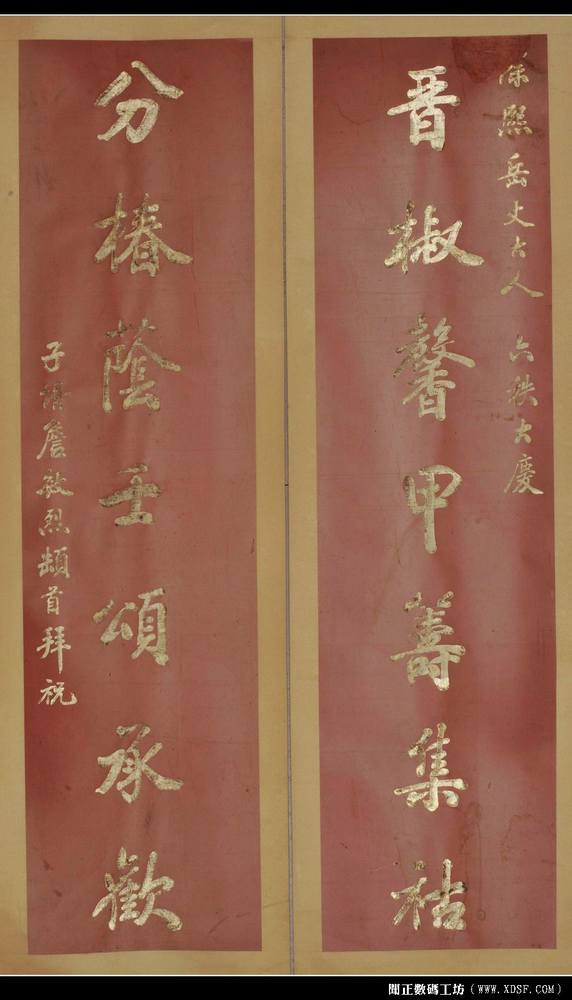 保熙岳丈大人 六秩大庆
晋椒馨甲筹集祜
分椿蔭壬頌承歡
子婿詹敏烈頓首拜祝
聞正數碼工坊（www.XDSF.COM）